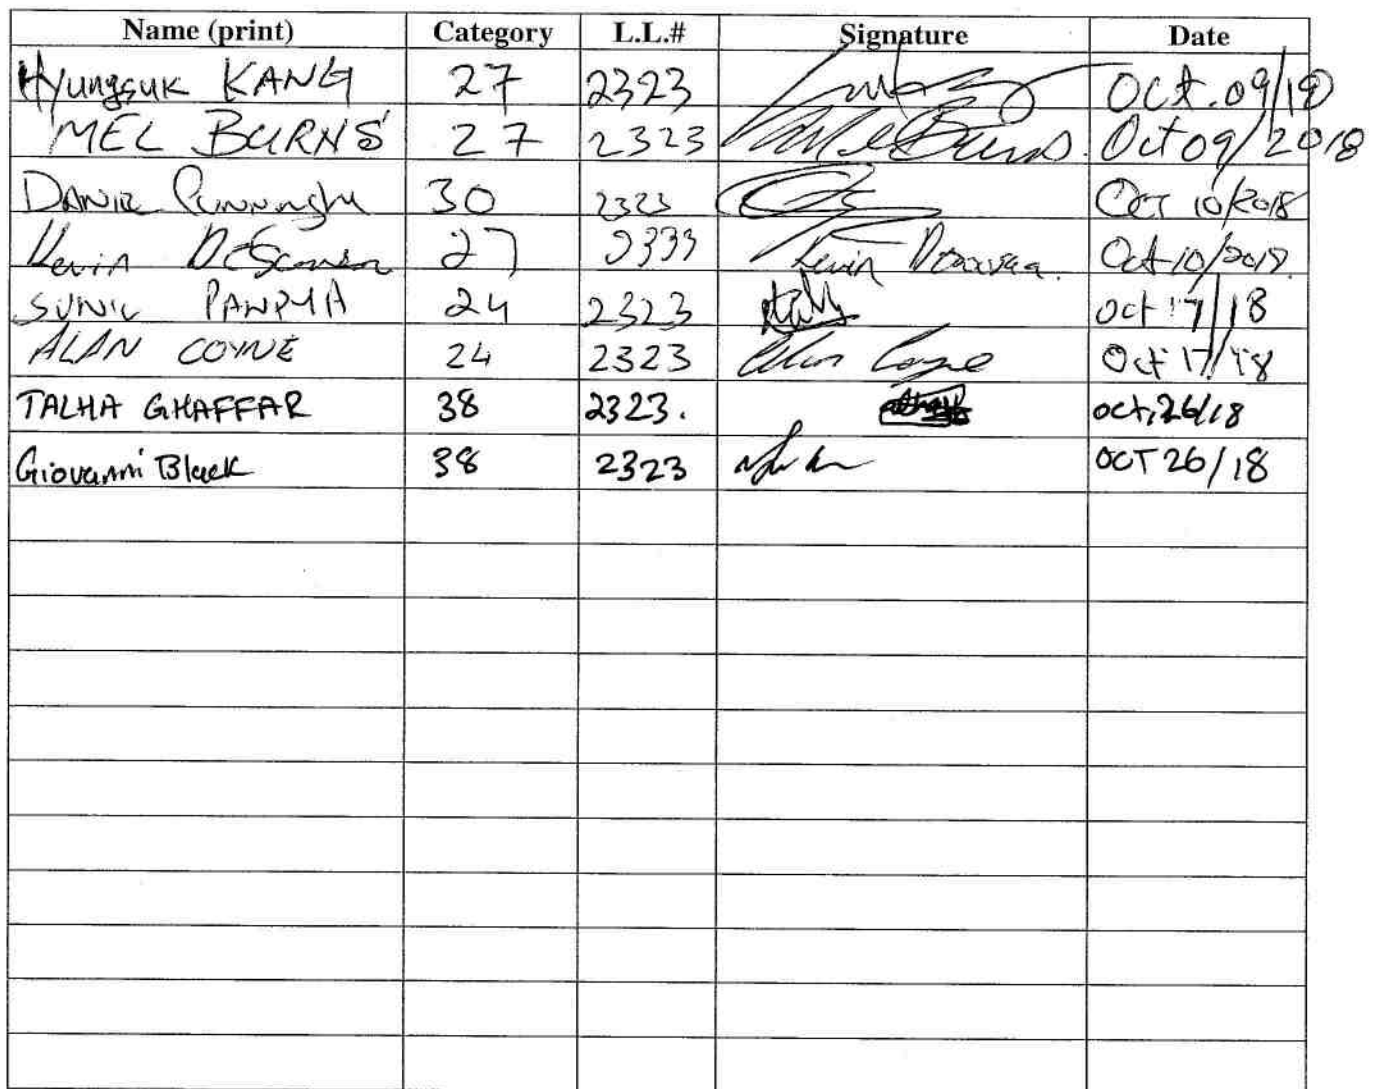 Name (print) Category L.L.# Signature Date
Hyungsuk KANG 27 2323 Oct.09/18
MEL BURNS 27 2323 Mel Burns Oct 09/2018
30 2323 Oct 10/2018
Kevin 27 2333 Kevin Oct 10/2018
SUNIL PANDYA 24 2323 oct 17/18
ALAN COYNE 24 2323 Alan Coyne Oct 17/18
TALHA GHAFFAR 38 2323. oct,26/18
Giovanni Black 38 2323 OCT 26/18